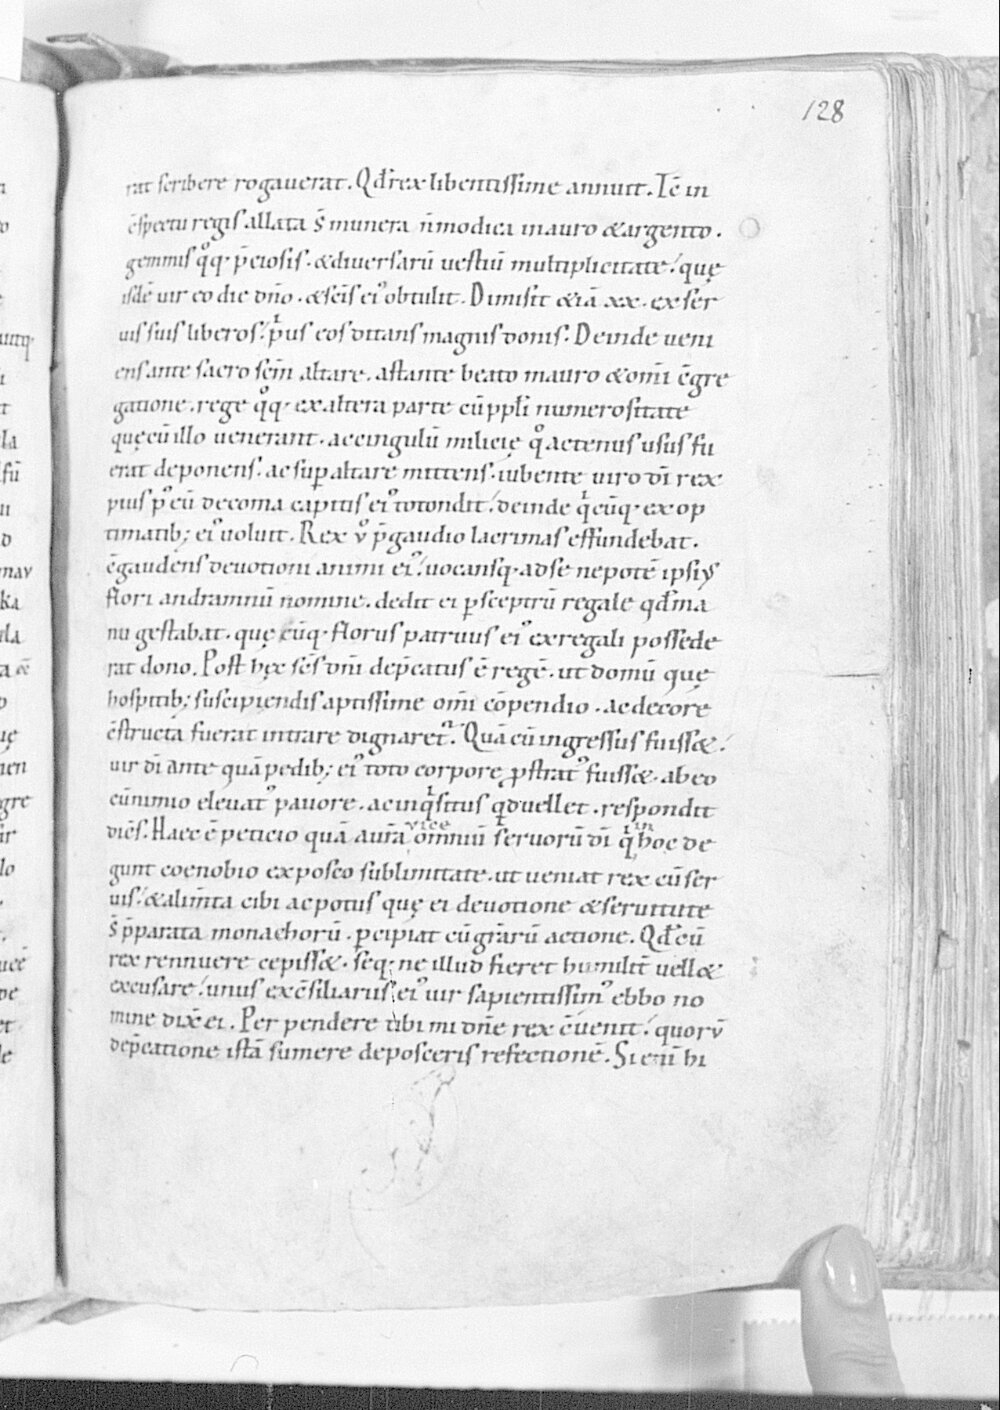 128
rat scribere rogauerat. Qđ rex libentissime annuit. Iē in
c̄spectu regis allata s̄ munera n̄ modica in auro & argento.
gemmis qͦq; p̄ciosis. & diuersarū uestiū multiplicitate. quę
isdē uir eo die dn̄o. & sc̄is ei᾽ obtulit. Dimisit & iā xx. ex ser
uis suis liberos. p͛us eos ditans magnis donis. Deinde ueni
ens ante sacro sc̄m altare. astante beato mauro & om̄i c̄gre
gatione. rege qͦq; ex altera parte cū ppl̄i numerositate
quę cū illo uenerant. ac cingulū milicię qͦ actenus usus fu
erat deponens. ac sup altare mittens. iubente uiro dī rex
pius p᾽ eū de coma capitis ei᾽ totondit. deinde qͥcūq; ex op
timatib; ei᾽ uoluit. Rex ṽ p̄ gaudio lacrimas effundebat.
c̄gaudens deuotioni animi ei᾽. uocansq; ad se nepotē ipsiꝰ
flori andramnū nomine. dedit ei p sceptrū regale qđ ma
nu gestabat. quę cūq; florus patruus ei᾽ ex regali possede
rat dono. Post hęc sc̄s dn̄i dep̄catus ē regē. ut domū quę
hospitib; suscipiendis aptissime om̄i cōpendio. ac decore
c̄structa fuerat intrare dignaret᾽. Quā cū ingressus fuiss&.
uir dī ante quā pedib; ei᾽ toto corpore ꝓstrat᾽ fuiss&. ab eo
cū nimio eleuat᾽ pauore. ac inqͥsitus qͥd uellet. respondit
dicēs. Haec ē peticio quā aūr̄a vice om̄niū seruorū dī qͥ in hoc de
gunt coenobio exposco sublimitate. ut ueniat rex cū ser
uis. & alim̄ta cibi ac potus quę ei deuotione & seruitute
s̄ p̄parata monachorū. pcipiat cū gr̄arū actione. Qđ cū
rex rennuere cepiss&. seq; ne illud fieret humilit᾽ uell&
excusare. unus ex c̄siliariis ei᾽ uir sapientissim᾽ ebbo no
mine dix̄ ei. Per pendere tibi mi dn̄e rex c̄uenit. quorū
dep̄catione istā sumere deposceris refectionē. Si enī hi